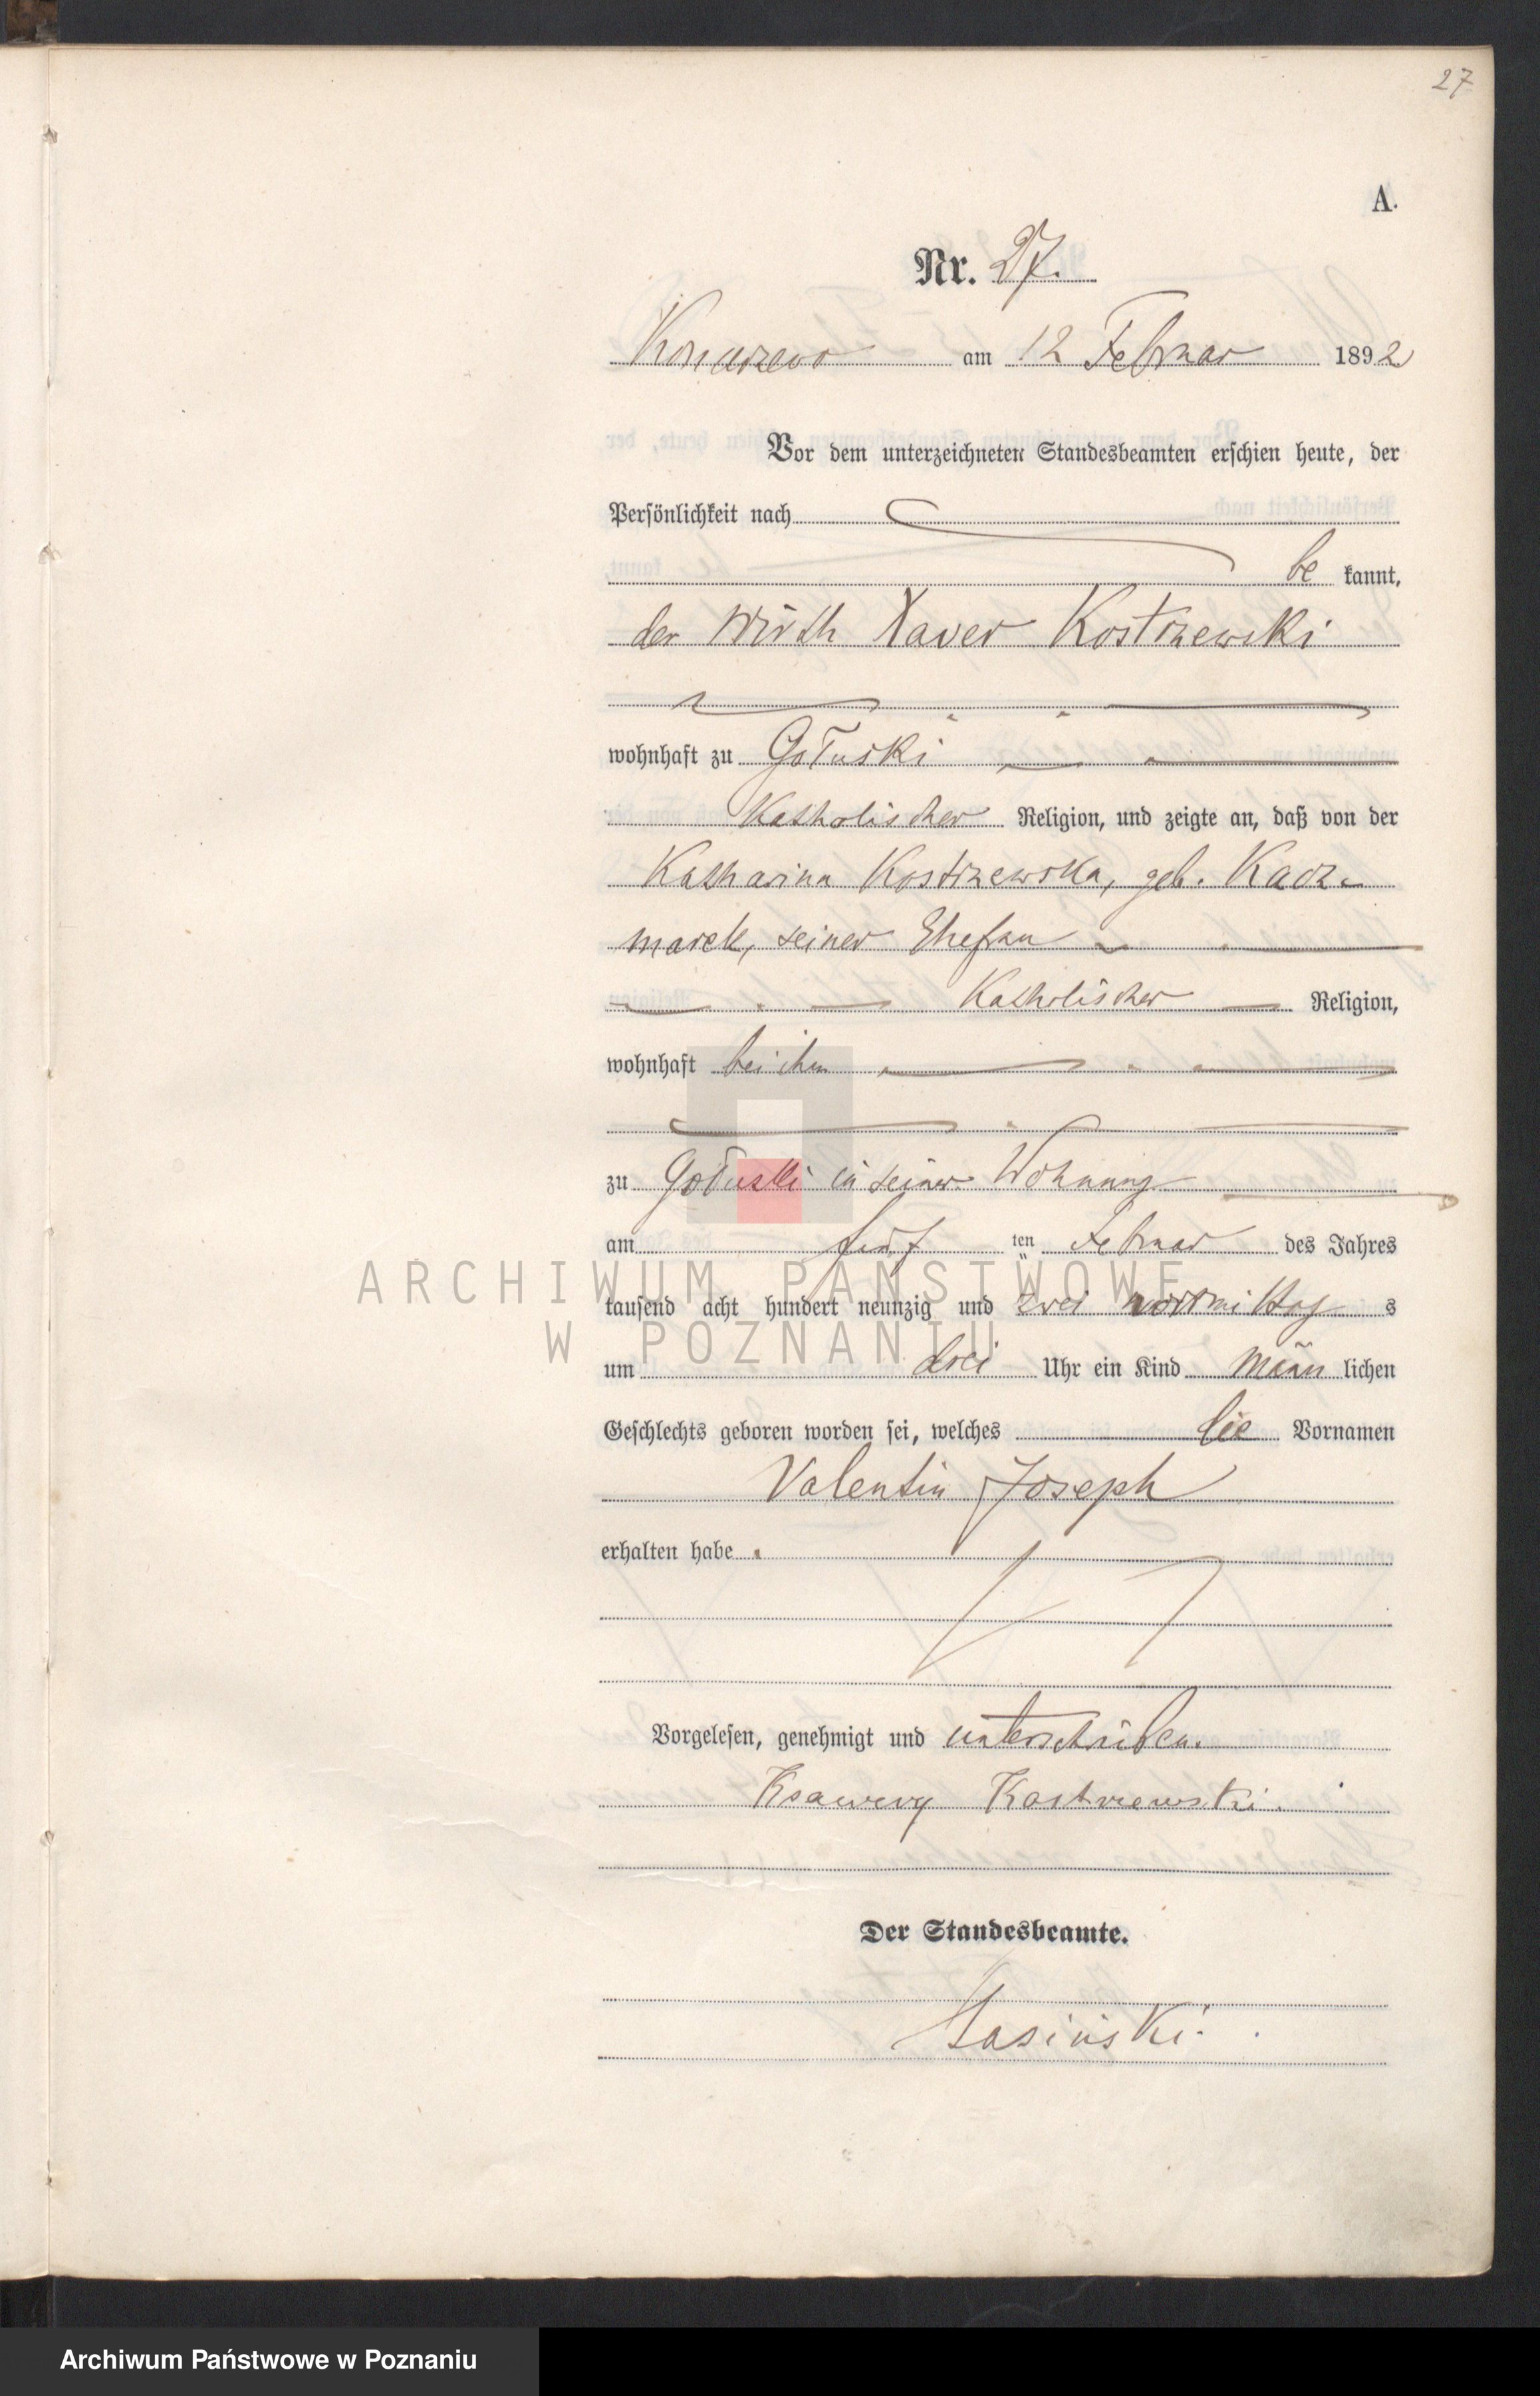 27
A.
Nr. 27.
Konarzewo am 12 Februar 1892
Vor dem unterzeichneten Standesbeamten erschien heute, der
Persönlichkeit nach
be kannt,
der Wirth Xaver Kostrzewski
wohnhaft zu Gołuski
Katholischer Religion, und zeigte an, daß von der
Katharina Kostrzewska, geb. Kacz-
marek, seiner Ehefrau
Katholischer Religion,
wohnhaft bei ihm
zu Gołuski in seiner Wohnung
am fünf ten Februar des Jahres
tausend acht hundert neunzig und zwei vormittag s
um drei Uhr ein Kind männ lichen
Geschlechts geboren worden sei, welches die Vornamen
Valentin Joseph
erhalten habe.
Vorgelesen, genehmigt und unterschrieben.
Ksawery Kostrzewski.
Der Standesbeamte.
Stasiński.
ARCHIWUM PAŃSTWOWE
W POZNANIU
Archiwum Państwowe w Poznaniu